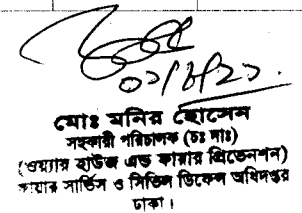 ০১/৮/২১
মোঃ মনির হোসেন
সহকারী পরিচালক (চঃ দাঃ)
(ওয়্যার হাউজ এন্ড ফায়ার প্রিভেনশন)
ফায়ার সার্ভিস ও সিভিল ডিফেন্স অধিদপ্তর
ঢাকা।